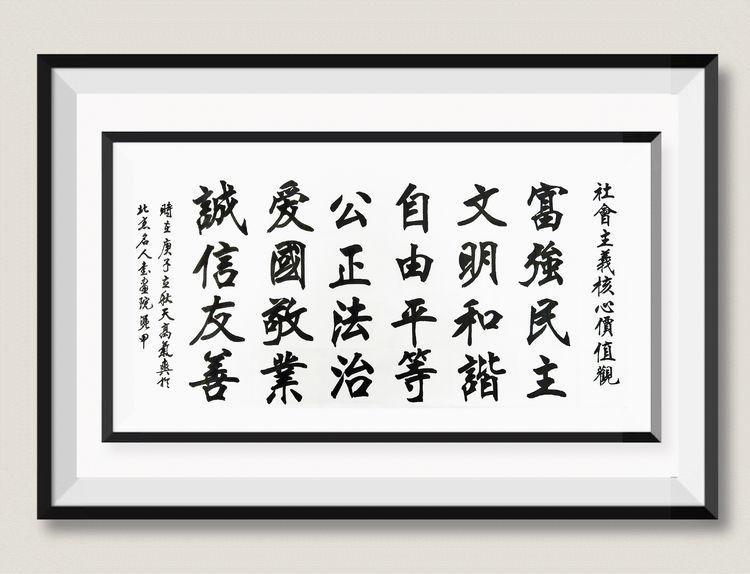 社會主義核心價值觀
富強民主
文明和諧
自由平等
公正法治
愛國敬業
誠信友善
時在庚子立秋天高氣爽於
北京名人書畫院